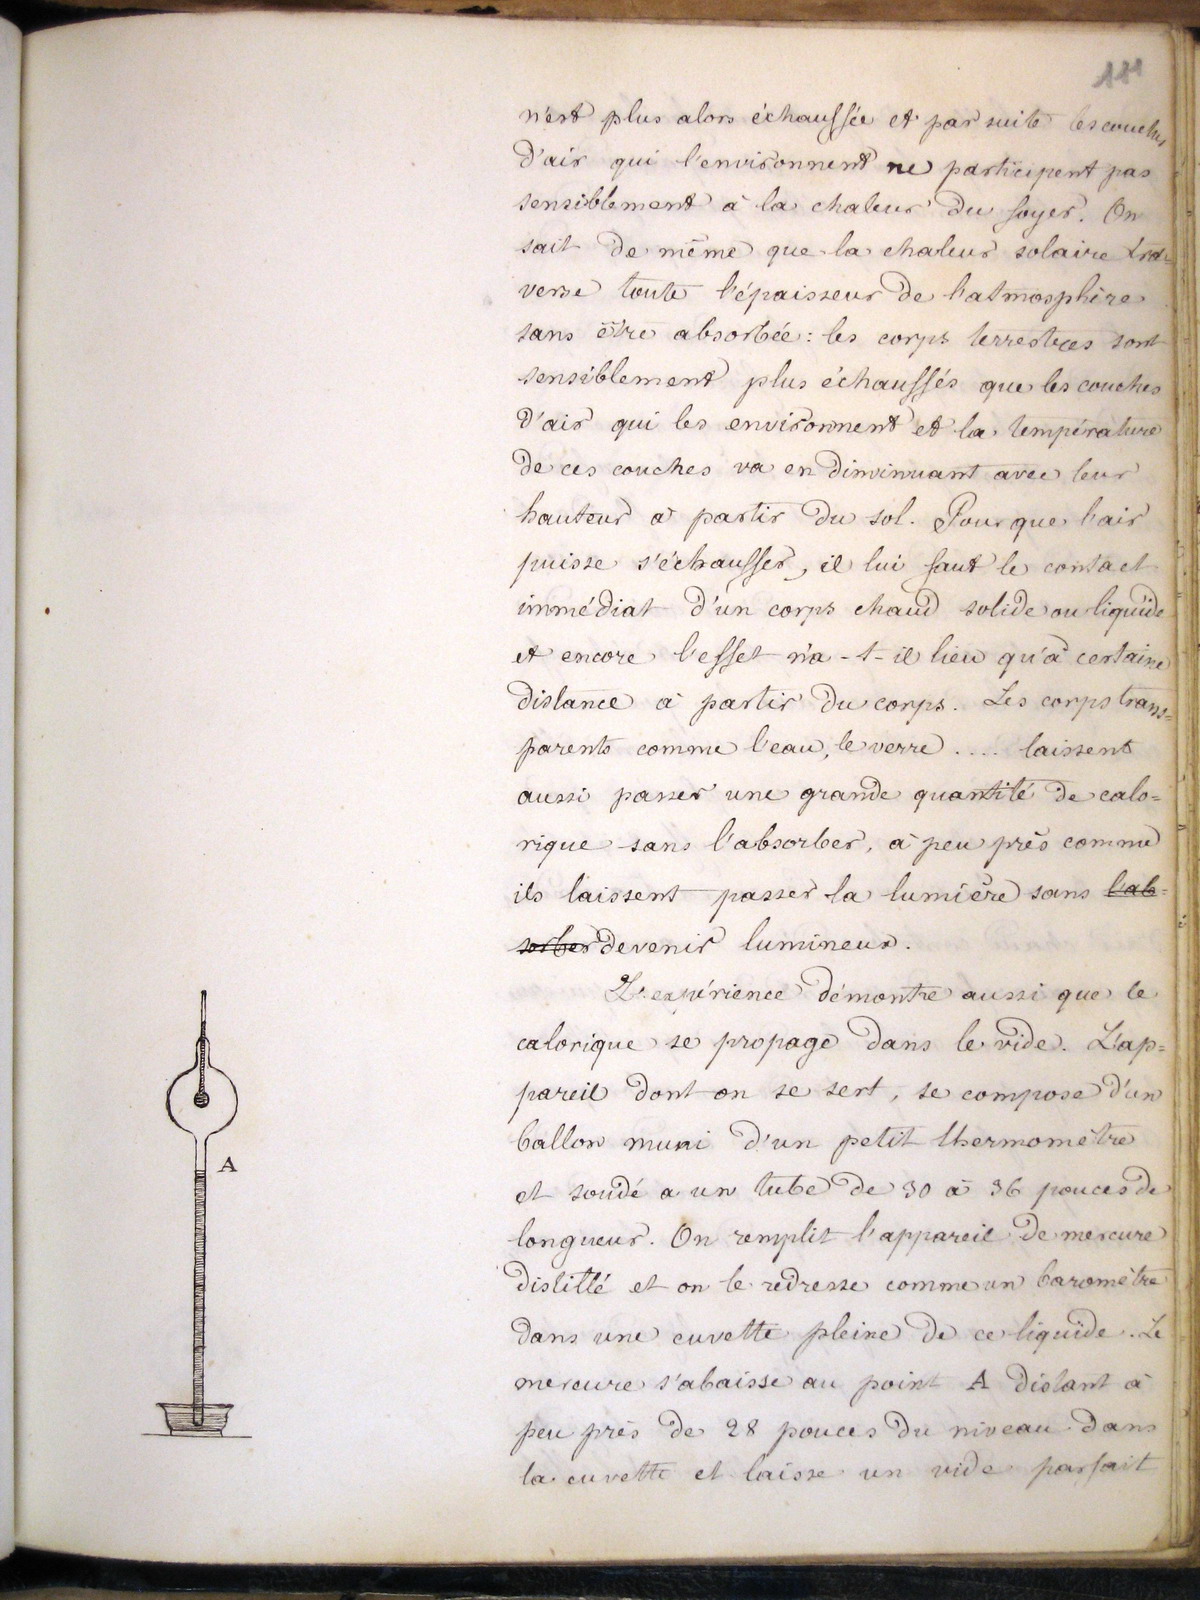 n'est plus alors échauffée et par suite les couches
d'air qui l'environnent ne participent pas
sensiblement à la chaleur du foyer. On
sait de même que la chaleur solaire tra-
verse toute l'épaisseur de l'atmosphère
sans être absorbée : les corps terrestres sont
sensiblement plus échauffés que les couches
d'air qui les environnent et la température
de ces couches va en diminuant avec leur
hauteur à partir du sol. Pour que l'air
puisse s'échauffer, il lui faut le contact
immédiat d'un corps chaud solide ou liquide
et encore l'effet n'a-t-il lieu qu'à certaine
distance à partir du corps. Les corps trans=
parents comme l'eau, le verre .... laissent
aussi passer une grande quantité de calo=
rique sans l'absorber, à peu près comme
ils laissent passer la lumière sans l'ab-
sorber devenir lumineux.
L'expérience démontre aussi que le
calorique se propage dans le vide. L'ap=
pareil dont on se sert, se compose d'un
ballon muni d'un petit thermomètre
et soudé a un tube de 30 à 36 pouces de
longueur. On remplit l'appareil de mercure
distillé et on le redresse comme un baromètre
dans une cuvette pleine de ce liquide. Le
mercure s'abaisse au point A distant à
peu près de 28 pouces du niveau dans
la cuvette et laisse un vide parfait
A